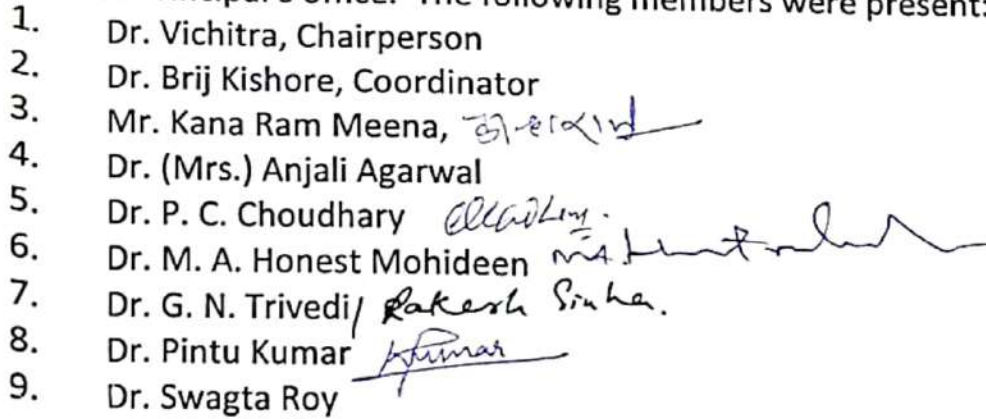 office. The following members were present:
1. Dr. Vichitra, Chairperson
2. Dr. Brij Kishore, Coordinator
3. Mr. Kana Ram Meena,
4. Dr. (Mrs.) Anjali Agarwal
5. Dr. P. C. Choudhary
6. Dr. M. A. Honest Mohideen
7. Dr. G. N. Trivedi/ Rakesh Sinha.
8. Dr. Pintu Kumar Kumar
9. Dr. Swagta Roy